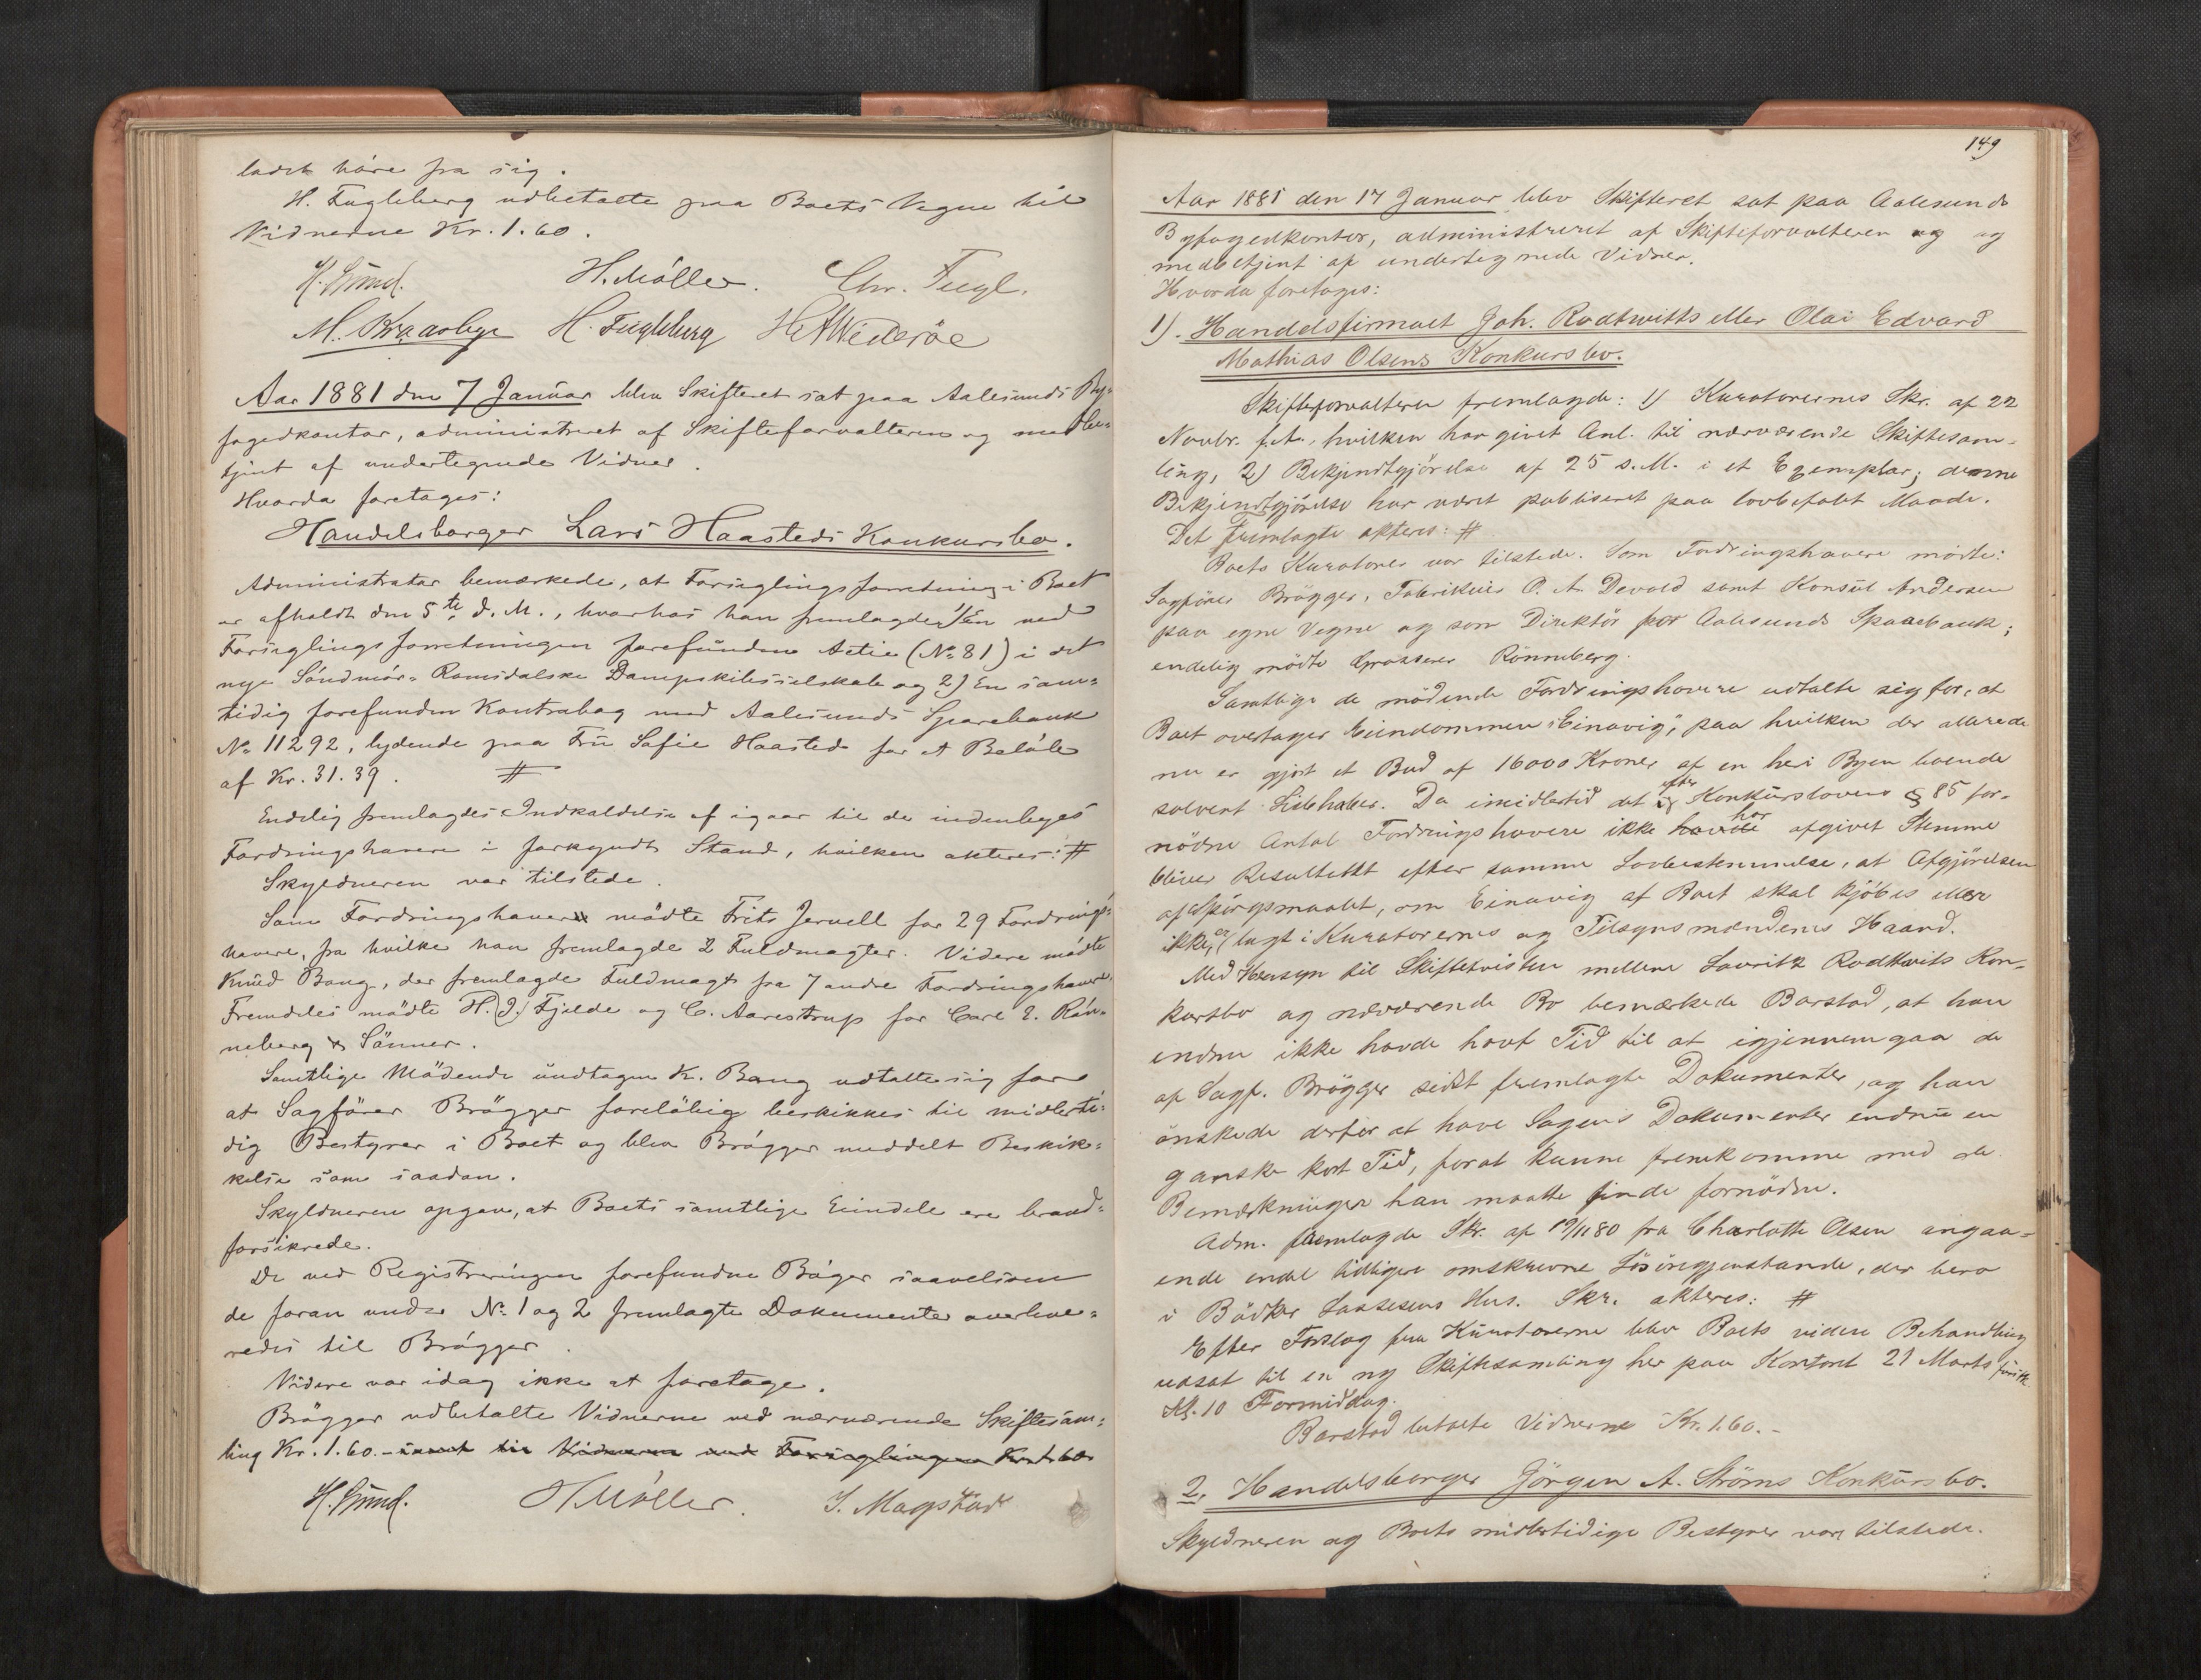 ladet höre fra sig.
H. Fugleberg udbetalte paa Boets Vegne til
Vidnerne Kr. 1.60.
H. Smed. H. Möller. Chr. Fugl.
M. Kraabye H. Fugleberg H A Wideröe
Aar 1881 den 7 Januar blev Skifteret sat paa Aalesunds By-
fogedkontor, administreret af Skifteforvalteren og medbe-
tjent af undertegnede Vidner.
Hvorda foretages:
Handelsborger Lars Haasteds Konkursbo.
Administrator bemærkede, at Forseglingsforretning i Boet
er afholdt den 5te d. M., hvorhos han fremlagde 1/ En ved
Forseglingsforretningen forefunden Actie (No 81) i det
nye Söndmör-Romsdalske Dampskibsselskab og 2) En sam-
tidig forefunden Kontrabog med Aalesunds Sparebank
No 11292, lydende paa Fru Sofie Haasted for et Belöb
af Kr. 31.39. #
Endelig fremlagdes Indkaldelse af igaar til de indenbyes
Fordringshavere i forkyndt Stand, hvilken akteres: #
Skyldneren var tilstede.
Som Fordringshavere mödte Frits Jervell for 29 Fordrings-
havere, fra hvilke han fremlagde 2 Fuldmagter. Videre mödte
Knud Bang, der fremlagde Fuldmagt fra 7 andre Fordringshavere.
Fremdeles mödte H. J. Fjelde og C. Aarestrup for Carl E. Rön-
neberg & Sönner.
Samtlige Mödende undtagen K. Bang udtalte sig for
at Sagförer Brögger foreløbig beskikkes til midlerti-
dig Bestyrer i Boet og blev Brögger meddelt Beskik-
kelse som saadan.
Skyldneren opgav, at Boets samtlige Eiendele ere brand-
forsikrede.
De ved Registreringen forefundne Böger saavelsom
de foran under No 1 og 2 fremlagte Dokumenter overleve-
redes til Brögger.
Videre var idag ikke at foretage.
Brögger udbetalte Vidnerne ved nærværende Skiftesam-
ling Kr. 1.60. - samt til Vidnerne ved Forseglingen
H. Smed. H Möller. J. Magstad
149
Aar 1881 den 17 Januar blev Skifteret sat paa Aalesunds
Byfogedkontor, administreret af Skifteforvalteren og og
medbetjent af undertegnede Vidner.
Hvorda foretages:
1). Handelsfirmaet Joh. Rodtwitts eller Olai Edvard
Mathias Olsens Konkursbo.
Skifteforvalteren fremlagde: 1) Kuratorernes Skr. af 22
Novbr. f. A., hvilken har givet Anl. til nærværende Skiftesam-
ling, 2) Bekjendtgjörelse af 25 s. M. i et Exemplar; denne
Bekjendtgjörelse har været publiseret paa lovbefalet Maade.
Det fremlagte akteres: #
Boets Kuratores var tilstede. Som Fordringshavere mödte:
Sagförer Brögger, Fabrikeier O. A. Devold samt Konsul Andersen
paa egne Vegne og som Direktör for Aalesunds Sparebank;
endelig mödte Grosserer Rönneberg.
Samtlige de mödende Fordringshavere udtalte sig for, at
Boet overtager Eiendommen "Einavig", paa hvilken der allerede
nu er gjort et Bud af 16000 Kroner af en her i Byen boende
solvent Liebhaber. Da imidlertid det efter Konkurslovens § 85 for-
nödne Antal Fordringshavere ikke havde har afgivet Stemme
bliver Resultatet efter samme Lovbestemmelse, at Afgjörelsen
af Spörgsmaalet, om Einavig af Boet skal kjöbes eller
ikke, er lagt i Kuratorernes og Tilsynsmændenes Haand.
Med Hensyn til Skiftetvisten mellem Lauritz Rodtwits Kon-
kursbo og nærværende Bo bemærkede Barstad, at han
endnu ikke havde havt Tid til at igjennemgaa de
af Sagf. Brögger sidst fremlagte Dokumenter, og han
önskede derfor at have Sagens Dokumenter endnu en
ganske kort Tid, forat kunne fremkomme med de
Bemærkninger han maatte finde fornödne.
Adm. fremlagde Skr. af 19/11 80 fra Charlotte Olsen angaa-
ende endel tidligere omskrevne Lösöregjenstande, der bero
i Bödker Lassesens Hus. Skr. akteres: #
Efter Forslag fra Kuratorerne blev Boets videre Behandling
udsat til en ny Skiftesamling her paa Kontoret 21 Marts förstk.
Kl. 10 Formiddag.
Barstad betalte Vidnerne Kr. 1.60.-
2. Handelsborger Jörgen A. Ströms Konkursbo.
Skyldneren og Boets midlertidige Bestyrer var tilstede.